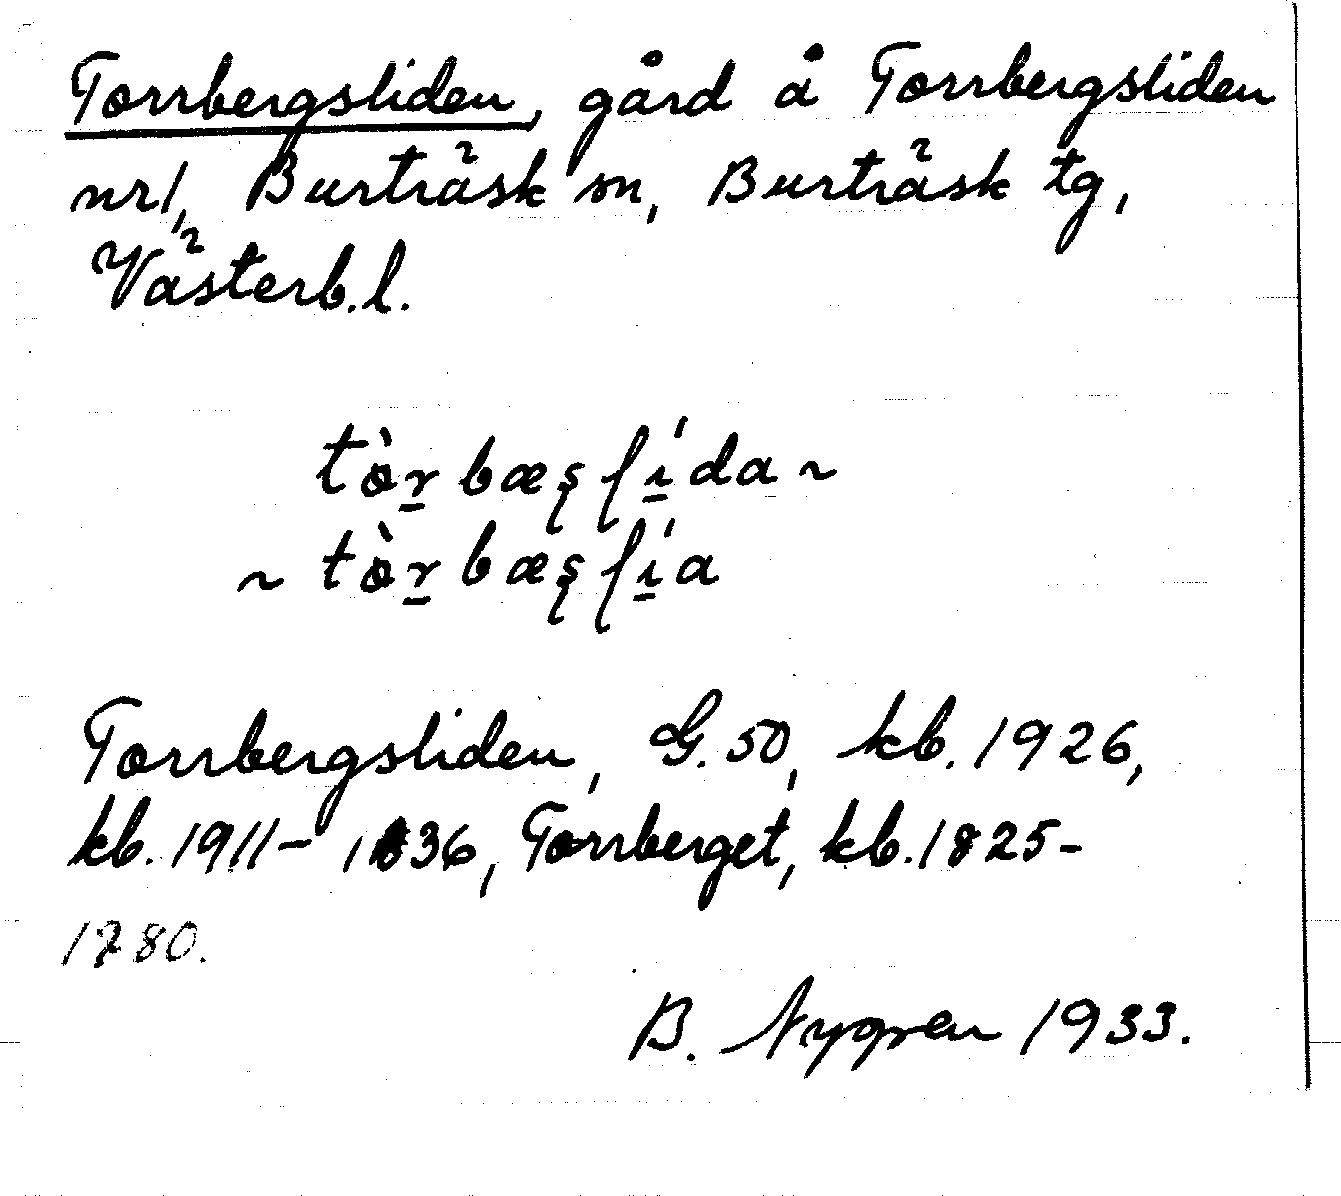 Torrbergsliden, gård å Torrbergsliden
nr1, Burträsk sn, Burträsk tg,
Västerb.l.
tòr̲bæʂſı̲́da ~
~ tòr̲bæʂſı̲́a
Torrbergsliden, G.50, kb.1926,
kb.1911–1836, Torrberget, kb.1825–
1780.
B. Nygren 1933.